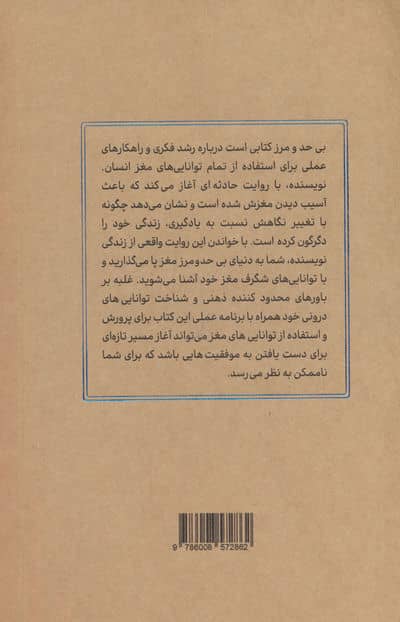 بی حد و مرز کتابی است درباره رشد فکری و راهکارهای
عملی برای استفاده از تمام توانایی‌های مغز انسان.
نویسنده، با روایت حادثه ای آغاز می‌کند که باعث
آسیب دیدن مغزش شده است و نشان می‌دهد چگونه
با تغییر نگاهش نسبت به یادگیری، زندگی خود را
دگرگون کرده است. با خواندن این روایت واقعی از زندگی
نویسنده، شما به دنیای بی حدومرز مغز پا می‌گذارید و
با توانایی‌های شگرف مغز خود آشنا می‌شوید. غلبه بر
باورهای محدود کننده ذهنی و شناخت توانایی های
درونی خود همراه با برنامه عملی این کتاب برای پرورش
و استفاده از توانایی های مغز می‌تواند آغاز مسیر تازه‌ای
برای دست یافتن به موفقیت هایی باشد که برای شما
ناممکن به نظر می‌رسد.
9 786008 572862